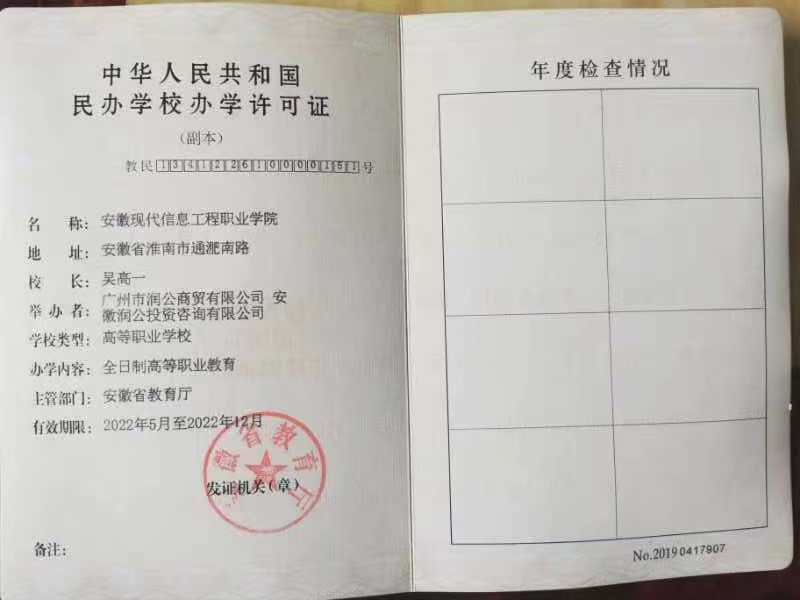 中华人民共和国
民办学校办学许可证
（副本）
教民134122610000151号
名 称：安徽现代信息工程职业学院
地 址：安徽省淮南市通淝南路
校 长：吴高一
举 办 者：广州市润公商贸有限公司 安
徽润公投资咨询有限公司
学校类型：高等职业学校
办学内容：全日制高等职业教育
主管部门：安徽省教育厅
有效期限：2022年5月至2022年12月
安徽省教育厅
发证机关（章）
备注：
年度检查情况
No.2019 0417907